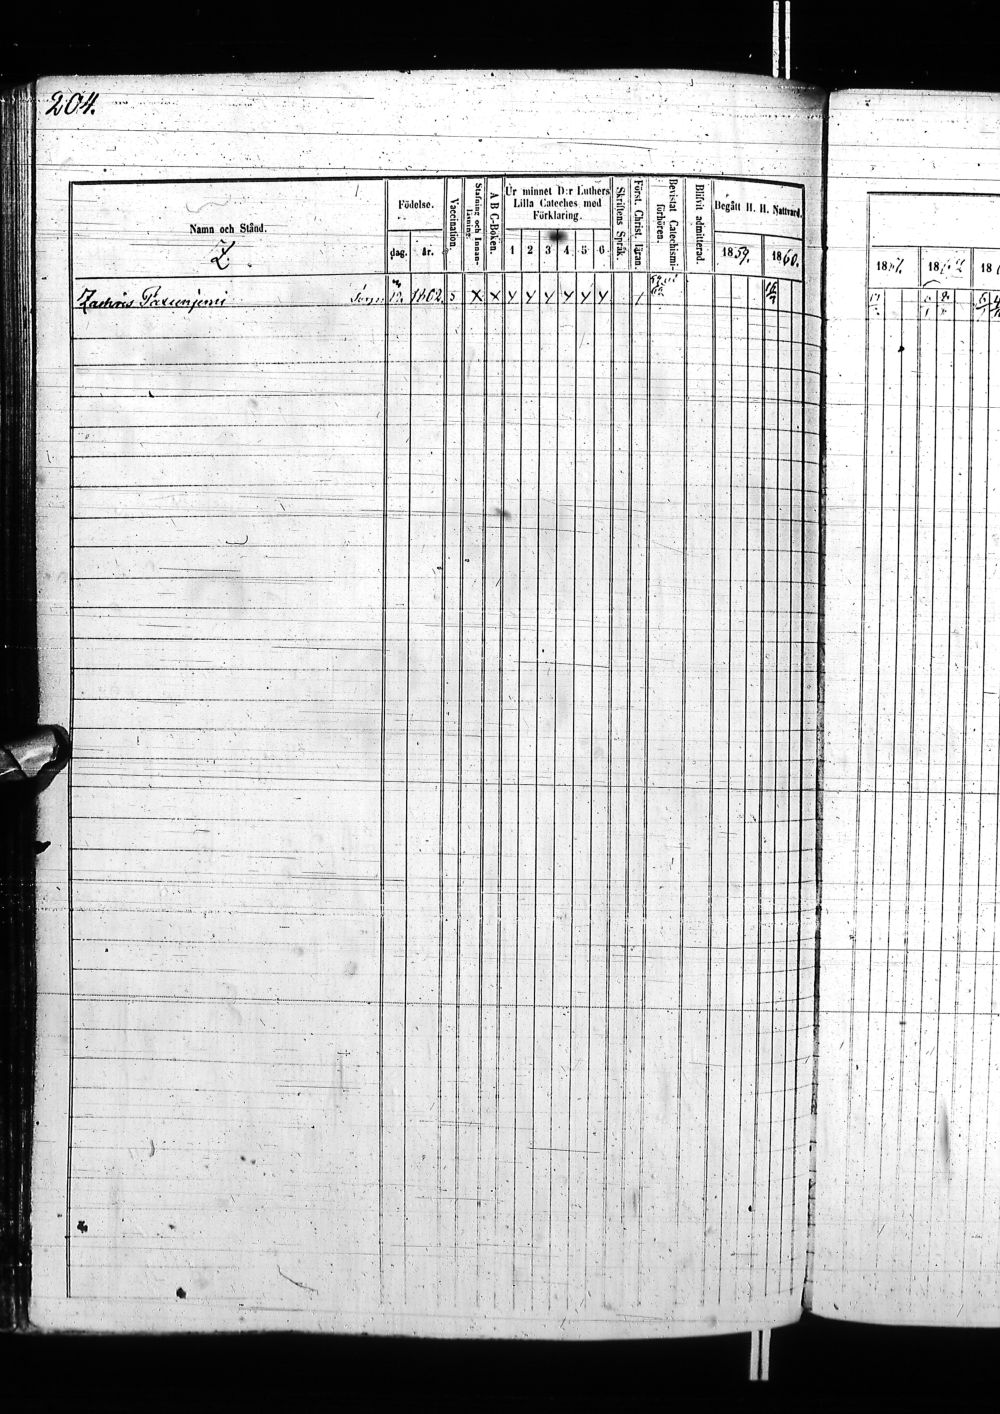 204.
Namn och Stånd.
Z.
Födelse.
dag. år.
Vaccination.
Stafning och Innanläsning.
A B C-Boken.
Ur minnet D:r Luthers Lilla Cateches med Förklaring.
1 2 3 4 5 6
Skriftens Språk.
Först. Christ. läran.
Bevistat Catechismiförhören.
Blifvit admitterad.
Begått H. H. Nattvard.
1859. 1860.
Zachris 1802. s x x y y y y y y /